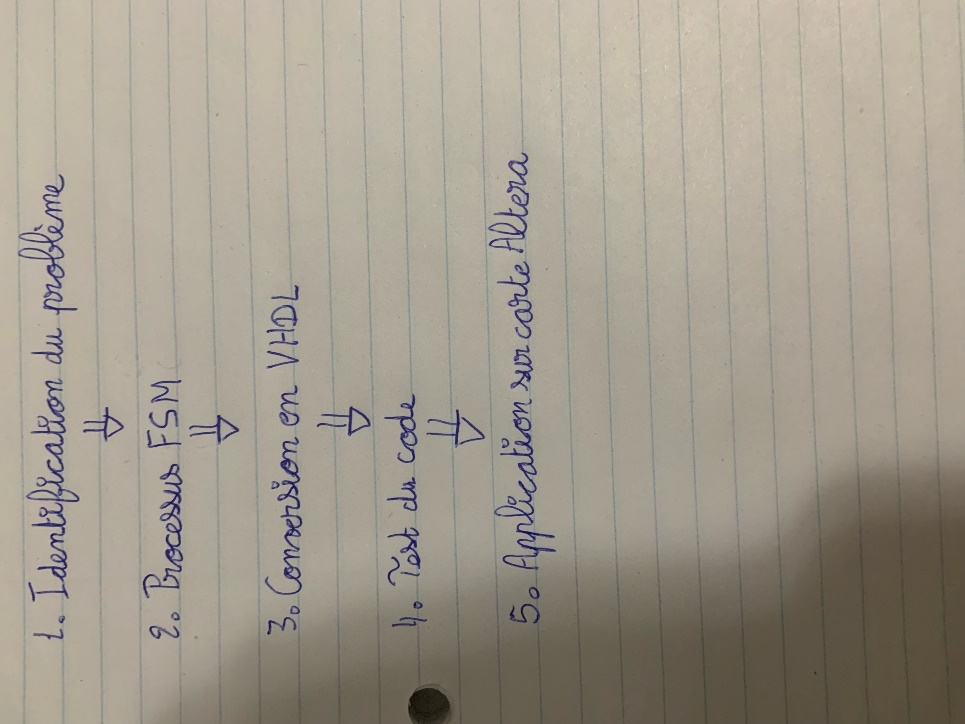 1. Identification du problème
⇓
2. Processus FSM
⇓
3. Conversion en VHDL
⇓
4. Test du code
⇓
5. Application sur carte Altera